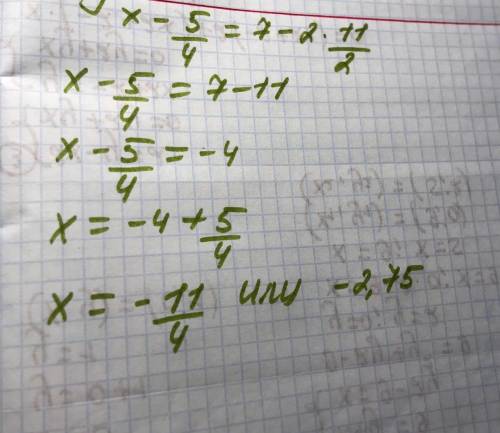 x - 5/4 = 7 - 2 · 11/2
x - 5/4 = 7 - 11
x - 5/4 = -4
x = -4 + 5/4
x = -11/4 или -2,75